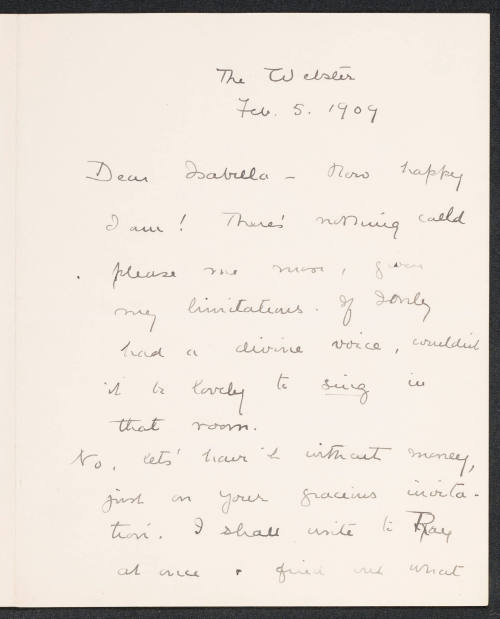 The Webster
Feb. 5. 1909
Dear Isabella - How happy
I am! There's nothing could
please me more, given
my limitations. If I only
had a divine voice, wouldn't
it be lovely to sing in
that room.
No, let's have it without money,
just on your gracious invita-
tion. I shall write to Ray
at once + find out what